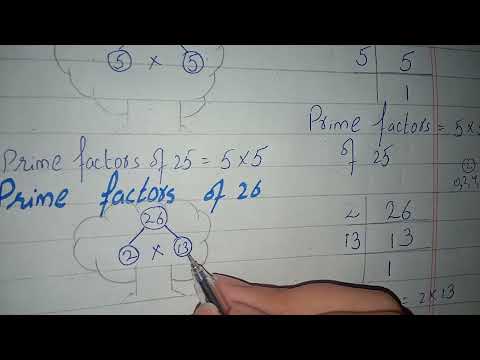 5 × 5
5 | 5
1
Prime factors of 25 = 5×5
Prime factors = 5×5
of 25
Prime factors of 26
26
2 × 13
2 | 26
13 | 13
1
= 2×13